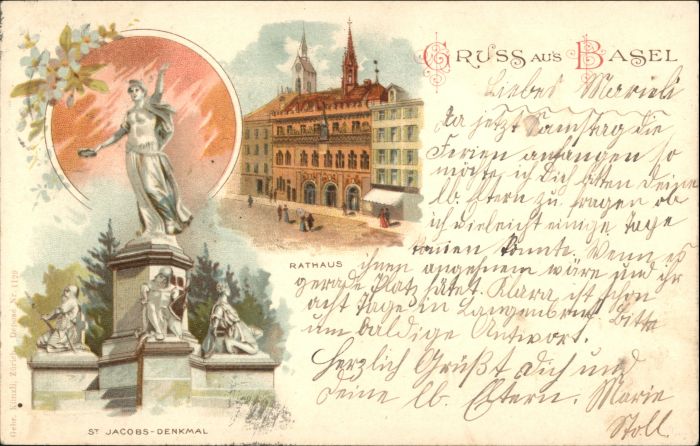 GRUSS AUS BASEL
Liebes Marieli
Da jetzt Samstag die
Ferien anfangen so
möchte ich dich bitten deine
lb. Eltern zu fragen ob
ich vieleicht einige Tage
könnte. Wenn es
RATHAUS
ihnen angenehm wäre und ihr
gerade Platz hätet. Klara ist schon
acht Tage in Langenbruk Bitte
um baldige Antwort.
Herzlich Grüßt Dich und
deine lb. Eltern. Marie
Stoll
ST JACOBS-DENKMAL
Gebr. Künzli, Zürich. Nr. 1129